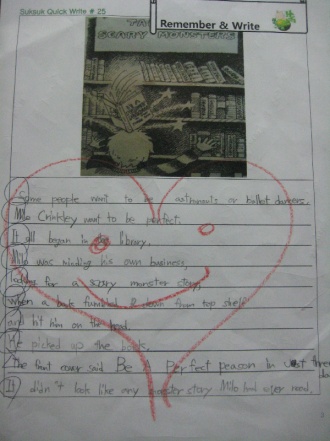 Suksuk Quick Write # 25
Remember & Write
SCARY MONSTERS
Some people want to be astronauts or ballet dancers.
Milo Crinkley want to be perfect.
It all began in the library,
Milo was minding his own business
looking for a scary monster story,
when a book tumbled down from top shelf
and hit him on the head.
He picked up the book.
The front cover said Be a Perfect peason in Just three
It didn't look like any monster story Milo had ever read.